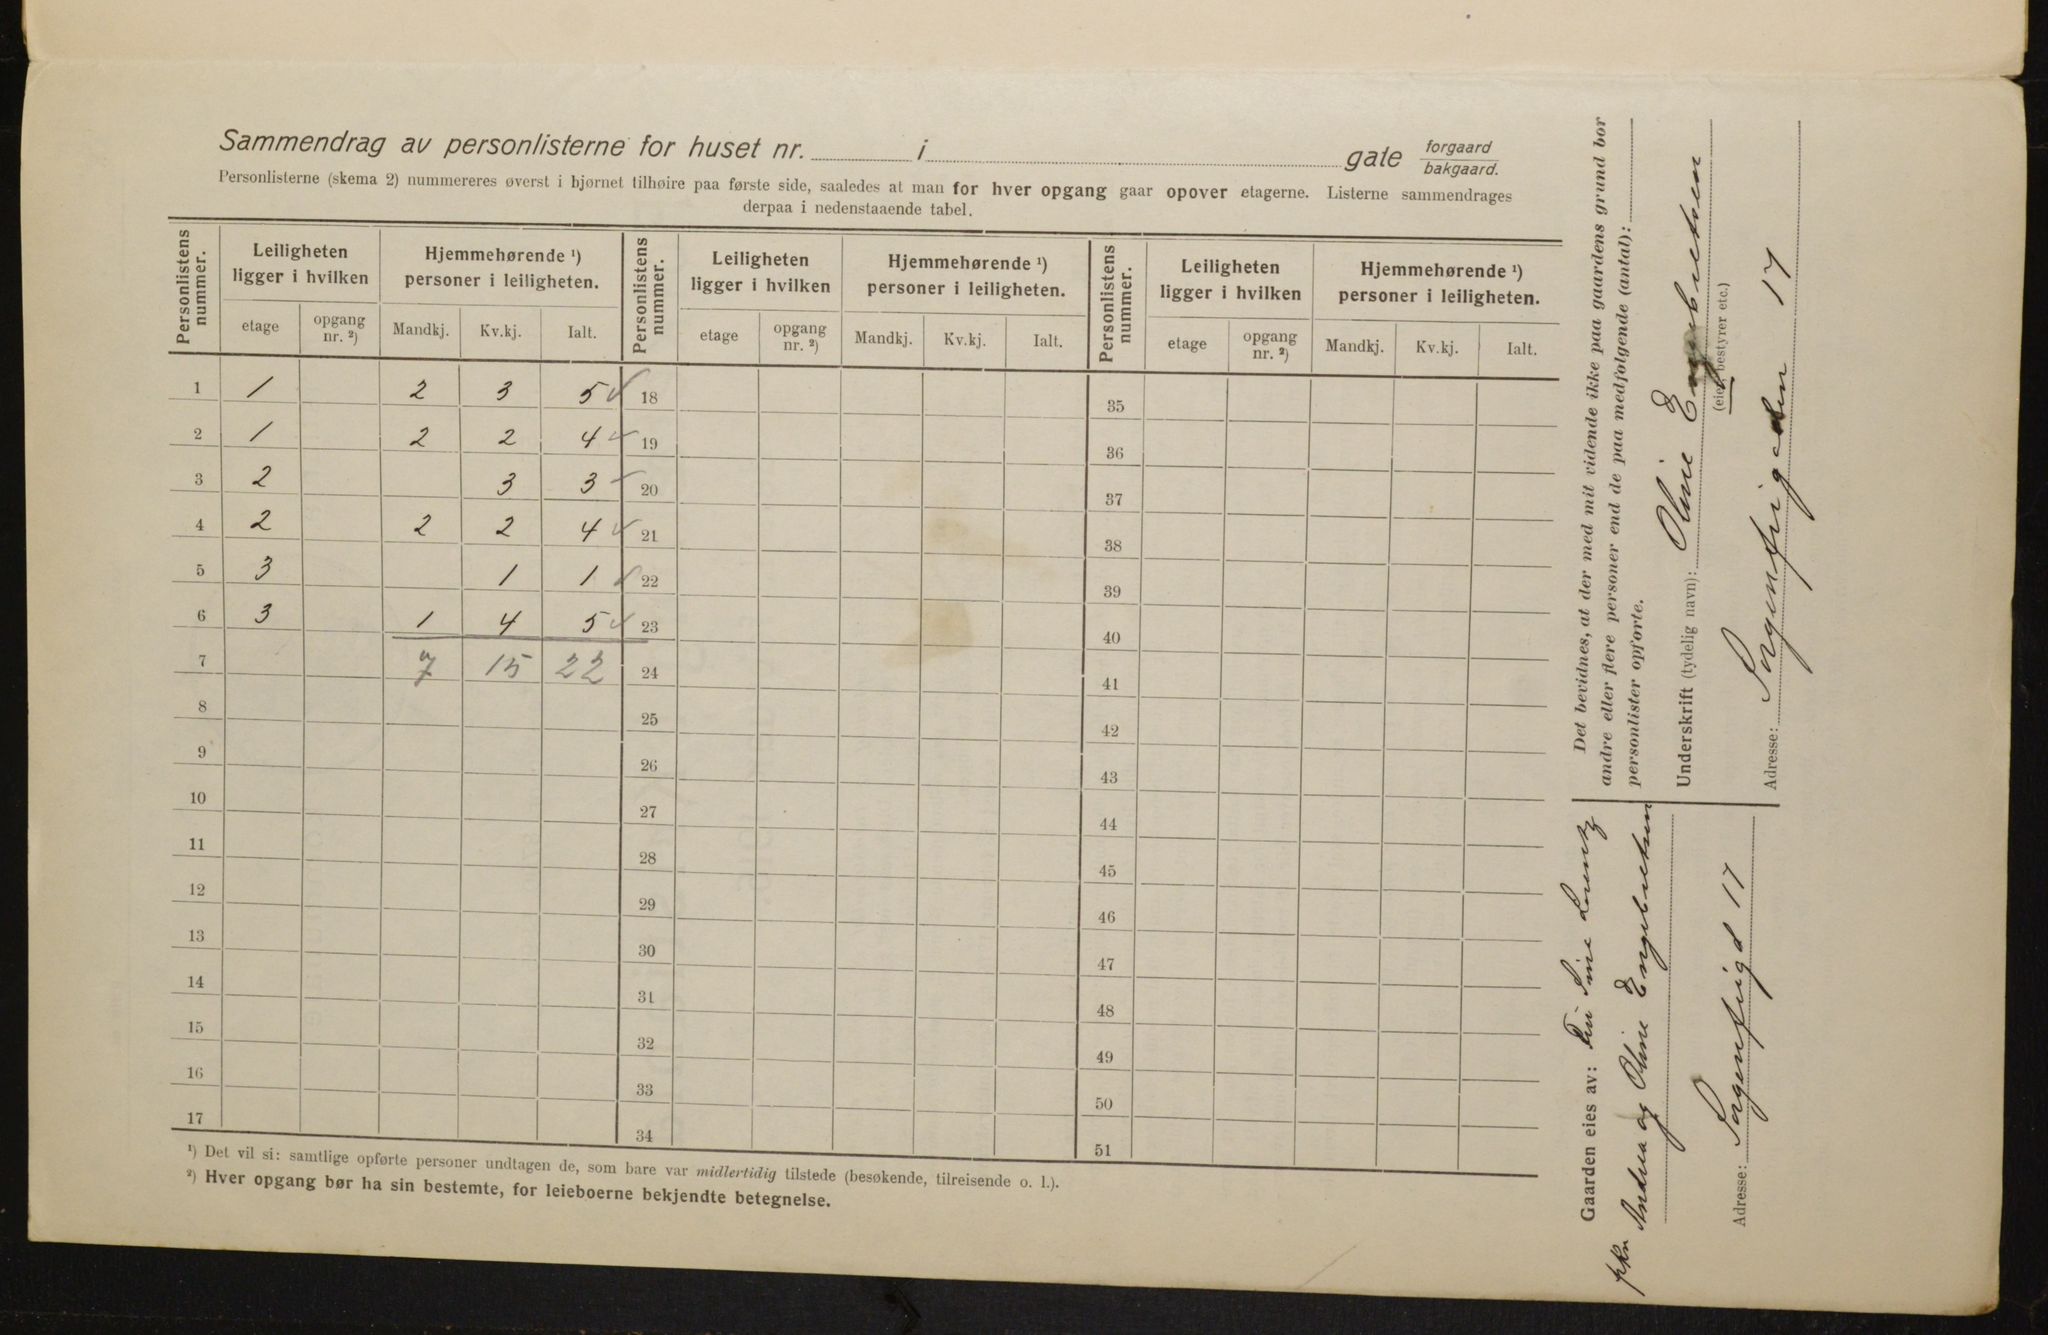 Sammendrag av personlisterne for huset nr. i gate forgaard
bakgaard.
Personlisterne (skema 2) nummereres øverst i hjørnet tilhøire paa første side, saaledes at man for hver opgang gaar opover etagerne. Listerne sammendrages
derpaa i nedenstaaende tabel.
Personlistens nummer. Leiligheten ligger i hvilken Hjemmehørende ¹) personer i leiligheten. Personlistens nummer. Leiligheten ligger i hvilken Hjemmehørende ¹) personer i leiligheten. Personlistens nummer. Leiligheten ligger i hvilken Hjemmehørende ¹) personer i leiligheten.
etage opgang nr. ²) Mandkj. Kv.kj. Ialt. etage opgang nr. ²) Mandkj. Kv.kj. Ialt. etage opgang nr. ²) Mandkj. Kv.kj. Ialt.
1 1 2 3 5 ✓ 18 35
2 1 2 2 4 ✓ 19 36
3 2 3 3 ✓ 20 37
4 2 2 2 4 ✓ 21 38
5 3 1 1 ✓ 22 39
6 3 1 4 5 ✓ 23 40
7 7 15 22 24 41
8 25 42
9 26 43
10 27 44
11 28 45
12 29 46
13 30 47
14 31 48
15 32 49
16 33 50
17 34 51
¹) Det vil si: samtlige opførte personer undtagen de, som bare var midlertidig tilstede (besøkende, tilreisende o. l.).
²) Hver opgang bør ha sin bestemte, for leieboerne bekjendte betegnelse.
Det bevidnes, at der med mit vidende ikke paa gaardens grund bor
andre eller flere personer end de paa medfølgende (antal):
personlister opførte.
Underskrift (tydelig navn): Oline Engebretsen
(eier, bestyrer etc.)
Adresse: Sogenfrigaden 17
Gaarden eies av: Sine
Andrea og Oline Engebretsen
Adresse: Sogenfrigd 17